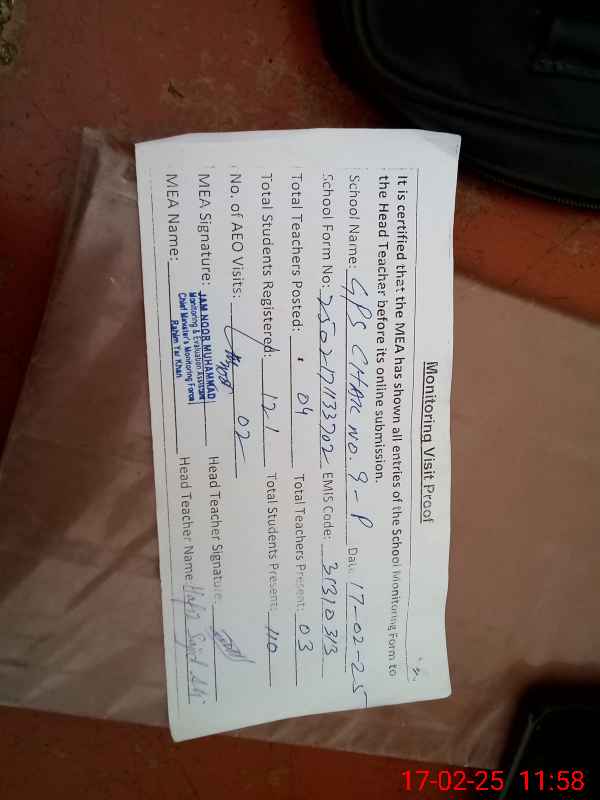 Monitoring Visit Proof
It is certified that the MEA has shown all entries of the School Monitoring Form to
the Head Teacher before its online submission.
School Name: GPS CHAK NO. 9-P Date 17-02-25
School Form No: 250217133702 EMIS Code: 31310313
Total Teachers Posted: 04 Total Teachers Present: 03
Total Students Registered: 121 Total Students Present: 110
No. of AEO Visits: 02
MEA Signature: Head Teacher Signature:
JAM NOOR MUHAMMAD
Monitoring & Evaluation Assistant
Chief Minister's Monitoring Force
Rahim Yar Khan
MEA Name: Head Teacher Name:
17-02-25 11:58